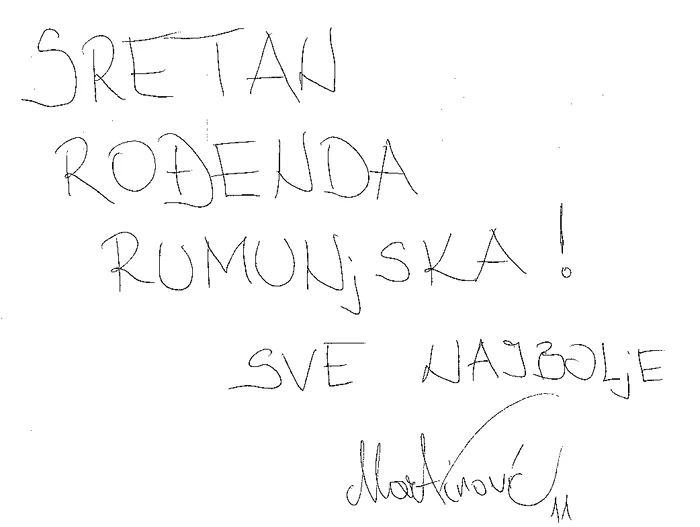 SRETAN
ROĐENDA
RUMUNjSKA!
SVE NAJBOLjE
Martinović 11